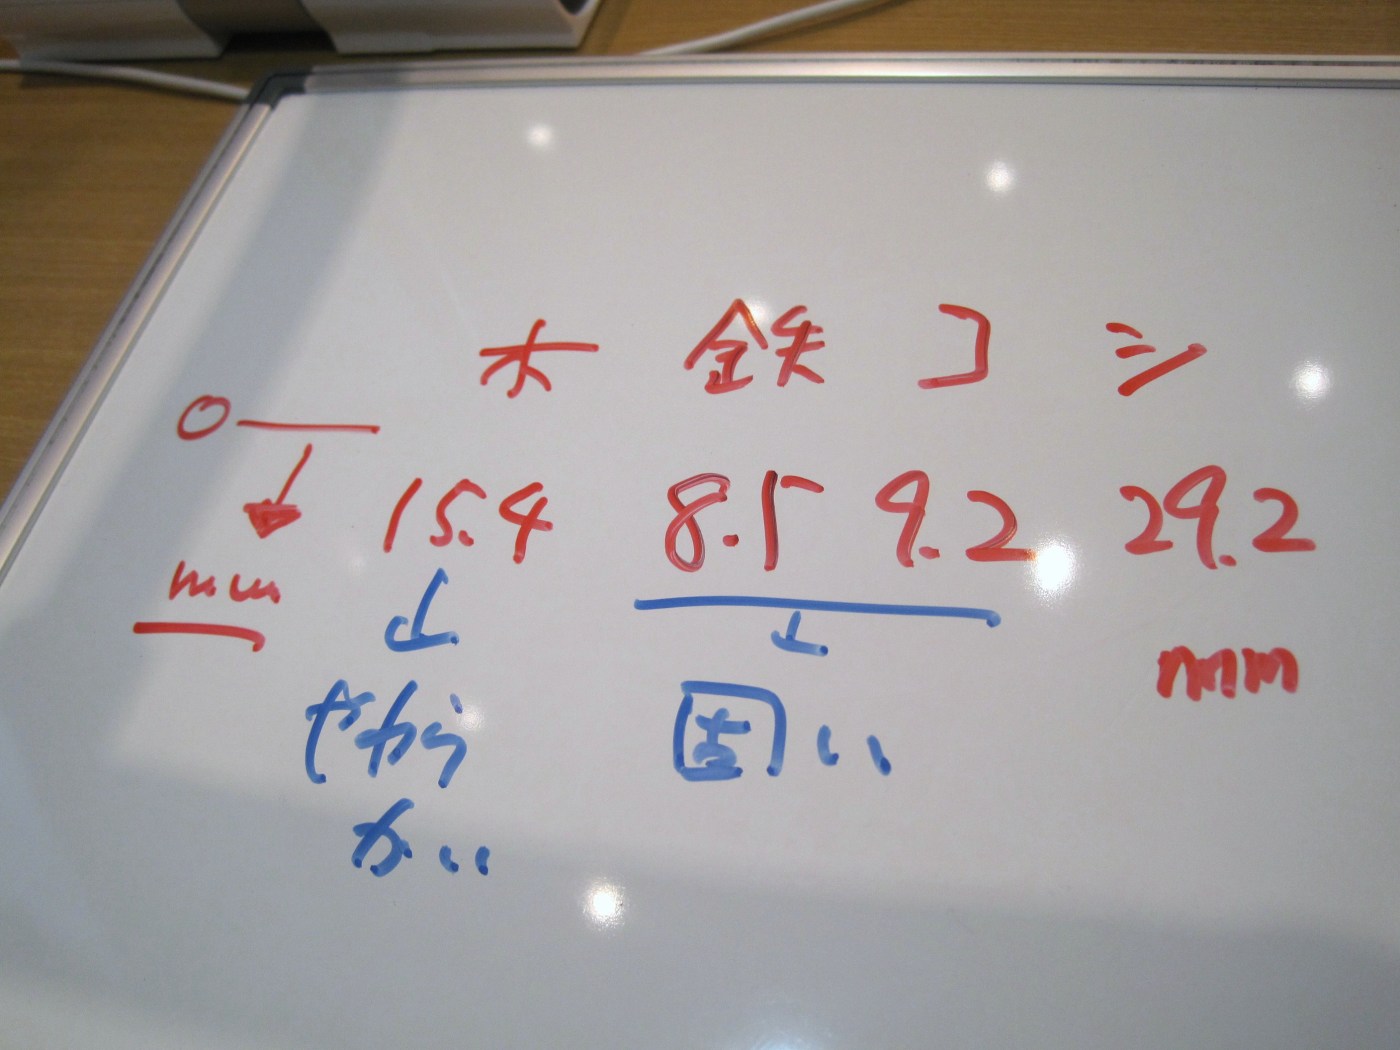 木 鉄 コ シ
15.4 8.5 9.2 29.2
mm
mm
やわら
かい
固い